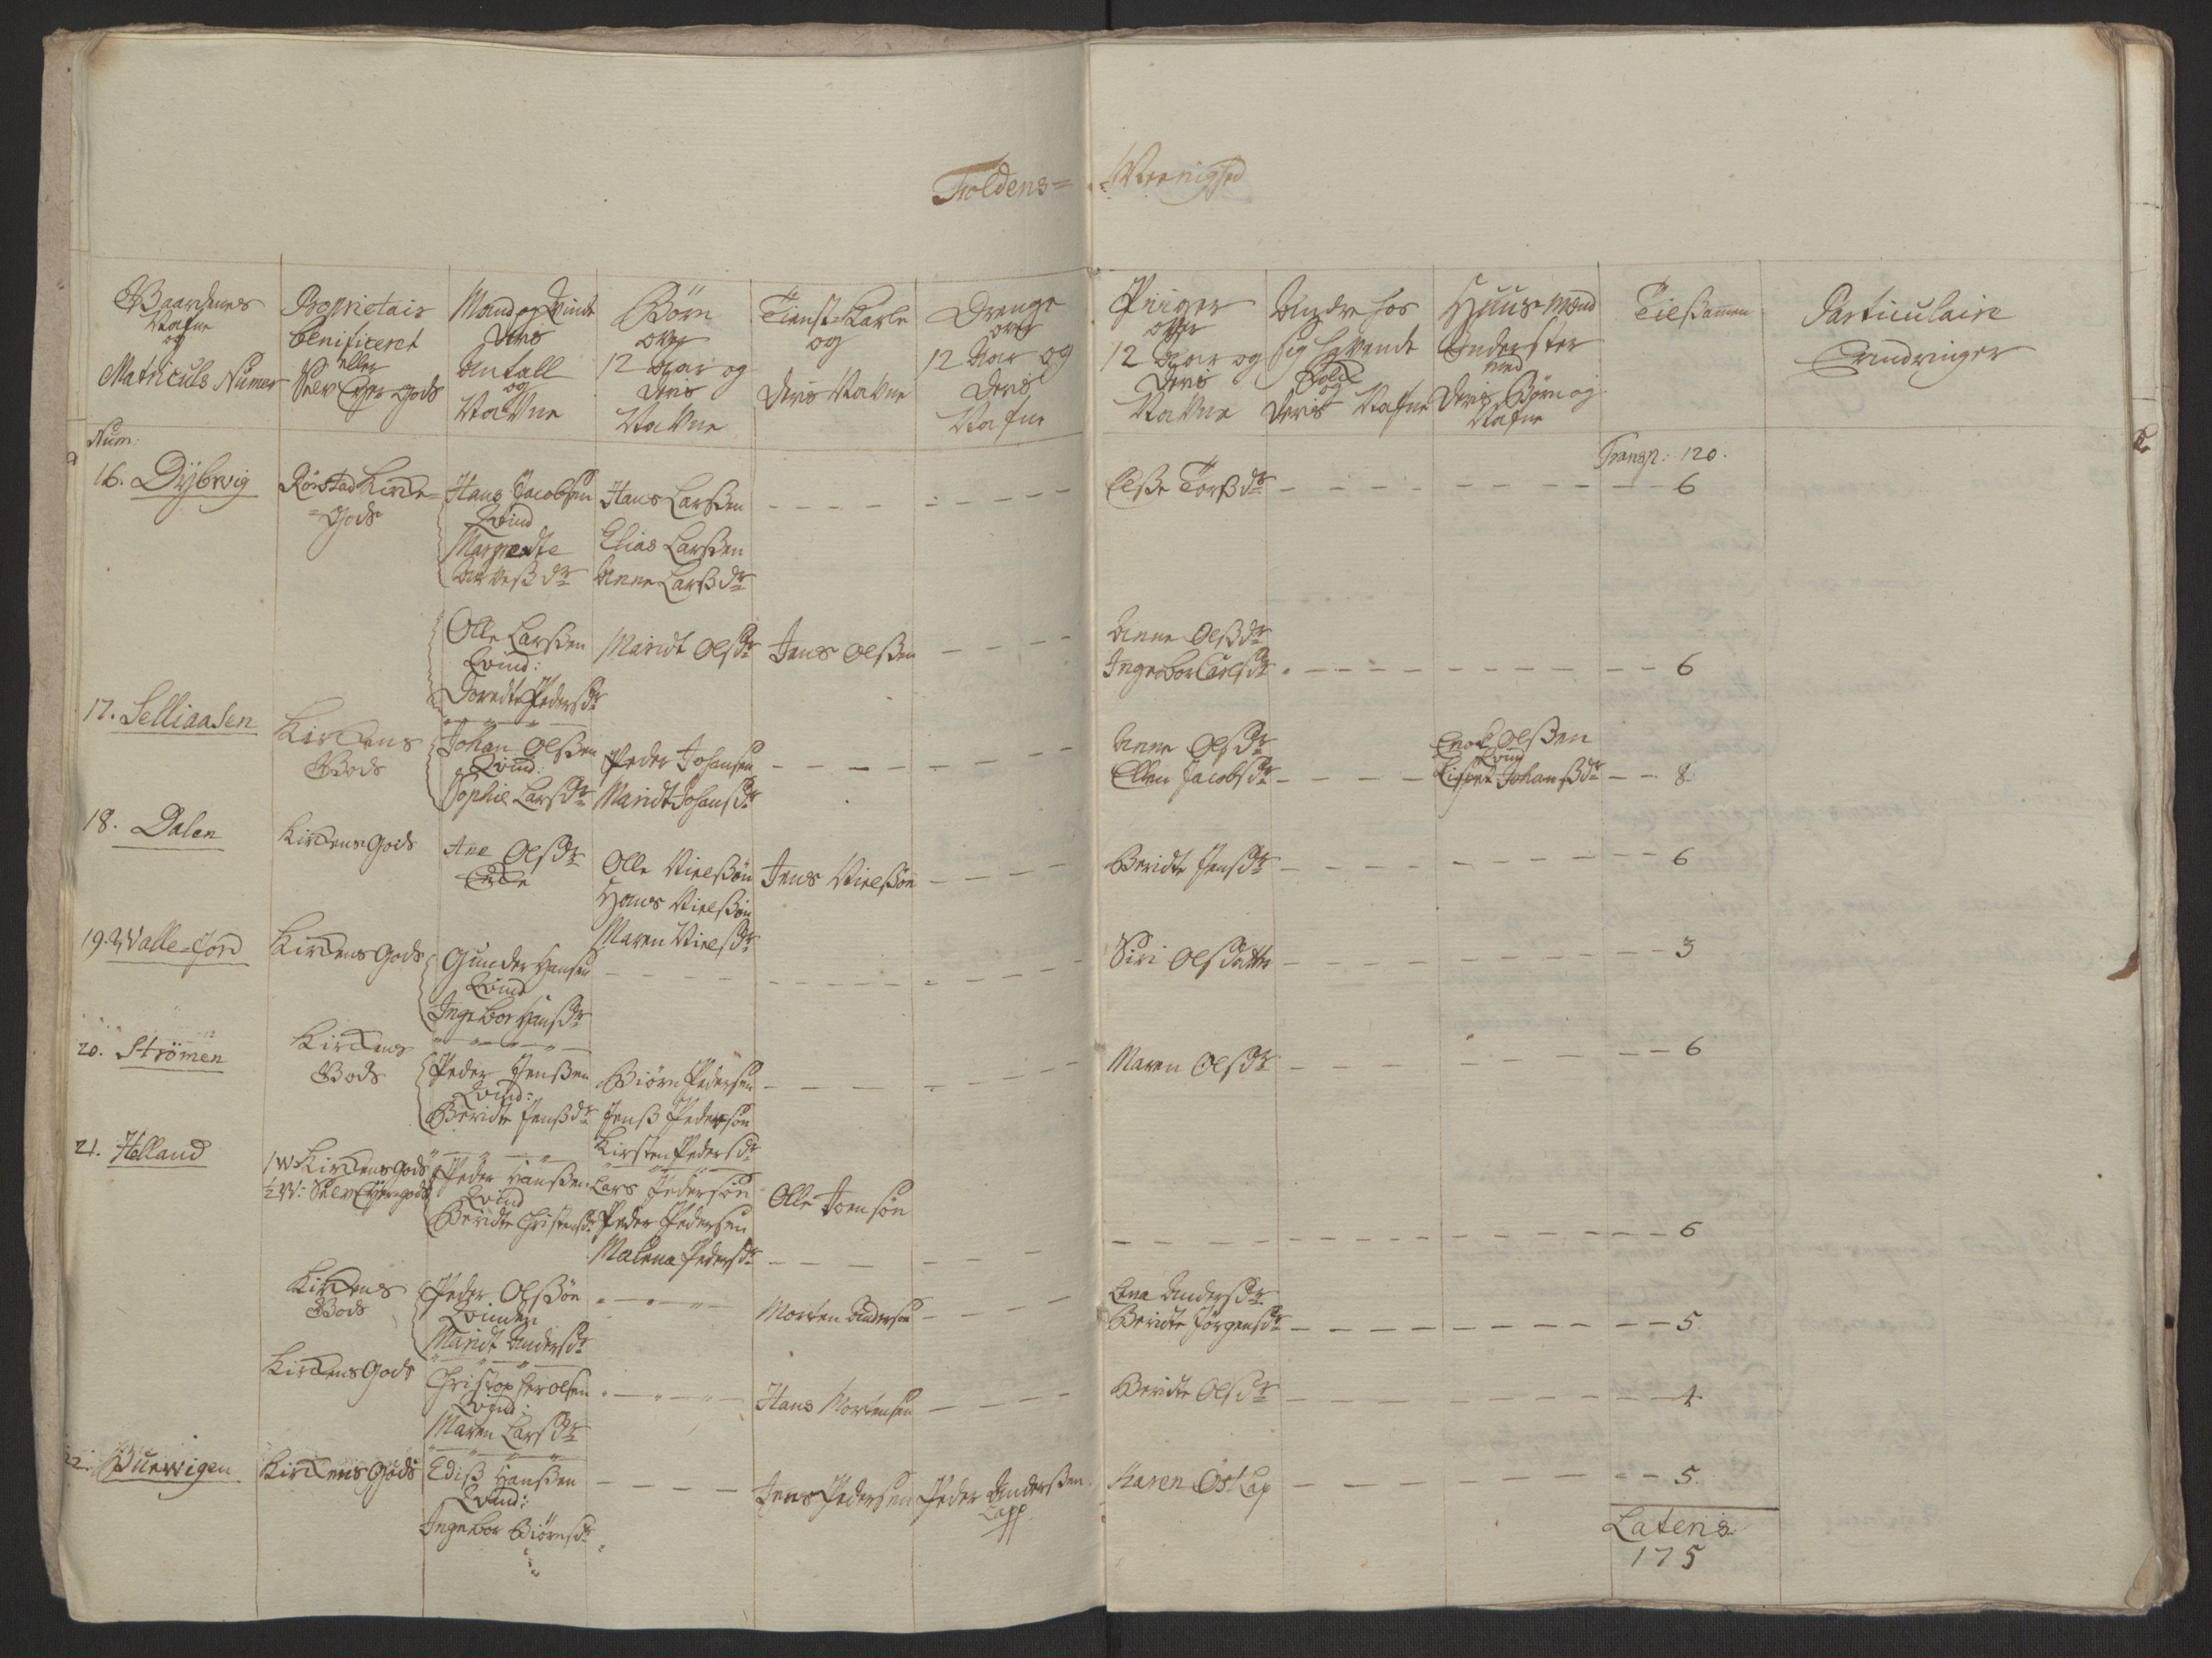 Foldens= Meenighed
Gaardenes Nafne og Matriculs Numer
Proprietair benificeret eller Selv Eyer Gods
Mand og Qvinde Deris Antall og Navne
Börn over 12 Aar og Deris Navne
Tienst=Karle og Deris Navne
Drenge over 12 Aar og Deris Nafne
Piiger over 12 Aar og Deris Navne
Andre hos sig havende Folck og Deris Nafne
Huus=Mænd Inderster med Deris Börn og Nafne
Tilsamen
Particulaire Endringer
Num:
Transp: 120.
16. Dybvig
Rörstad Kircke=
=Gods
Hans Jacobsen
Qvind
Margredte
Hans Larssen
Elias Larssen
Anne Larssdr
Elsse Torssdr
6
Olle Larssen
Qvind:
Doredte Pedersdr
Maridt Olsdr
Jens Olssen
Anne Olssdr
Ingebor Carlsdr
6
17. Selliaasen
Kirckens
Gods
Johan Olssen
Qvind:
Sophie Larsdr
Peder Johansen
Maridt Johansdr
Anne Olsdr
Ellen Jacobsdr
Enok Olssen
Qvind
Lisbet Johanssdr
8
18. Dalen
Kirckens Gods
Ane Olsdr
Encke
Olle Nielssön
Hans Nielssön
Maren Nielsdr
Jens Nielssön
Beridte Jensdr
6
19. Walle=Jord
Kirckens Gods
Gunder Hansen
Qvind
Ingebor Hansdr
Siri Olsdatter
3
20. Strömen
Kirckens
Gods
Peder Jenssen
Qvind:
Beridte Jenssdr
Biörn Pedersen
Jenss Pedersön
Kirsten Pedersdr
Maren Olsdr
6
21. Helland
1 W: Kirckens Gods
½ W: Selv Eyer=gods
Peder Hanssen
Qvind
Beridte Christensdr
Lars Pedersön
Peder Pedersen
Malena Pedersdr
Olle Joensön
6
Kirckens
Gods
Peder Olssön
Qvinden
Maridt Andersdr
Morten Andersen
Lena Andersdr
Beridte Jörgensdr
5
Kirckens Gods
Christopher Olsen
Qvind:
Maren Larsdr
Hans Mortensen
Beridte Olsdr
4
22.
Kirckens Gods
Ediss Hanssen
Qvind:
Ingebor Biörnsdr
Jens Pedersen
Peder Anderssen
Lapp
Karen Ost Lap
5.
Lateris
175